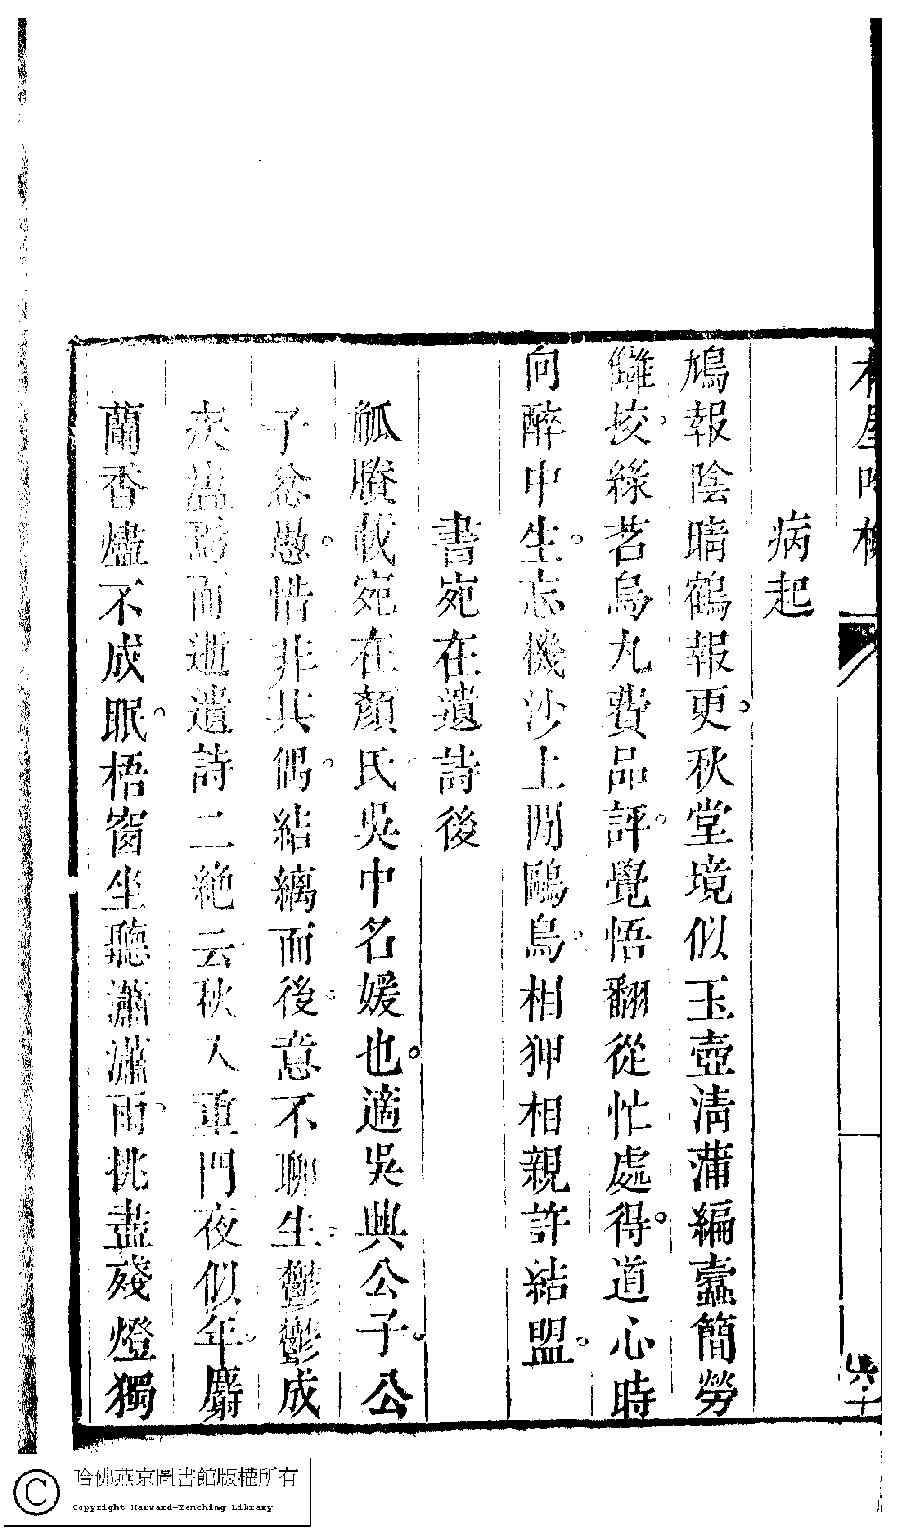 病起
鳩報陰晴鶴報更秋堂境似玉壺清蒲編蠹簡勞
讎挍綠茗烏丸費品評覺悟翻從忙處得道心時
向醉中生忘機沙上閒鷗鳥相狎相親許結盟
書宛在遺詩後
觚賸載宛在顏氏吳中名媛也適吳興公子公
子忿愚惜非其偶結縭而後意不聊生鬱鬱成
疾而逝遺詩二絕云秋人重門夜似年麝
蘭香燼不成眠梧窗坐聽瀟瀟雨挑盡殘燈獨
六十
哈佛燕京圖書館版權所有
Copyright Harvard-Yenching Library